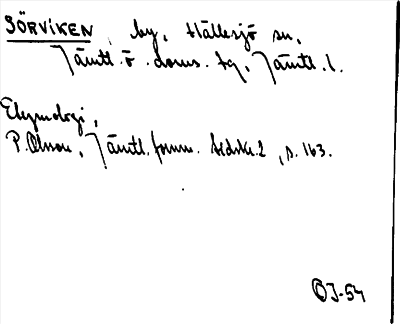 SÖRVIKEN, by, Hällesjö sn,
Jämtl. ö. doms. tg, Jämtl. l.
Etymologi,
P. Olsson, Jämtl. fornm. tidskr. 2, s. 163.
OJ-54